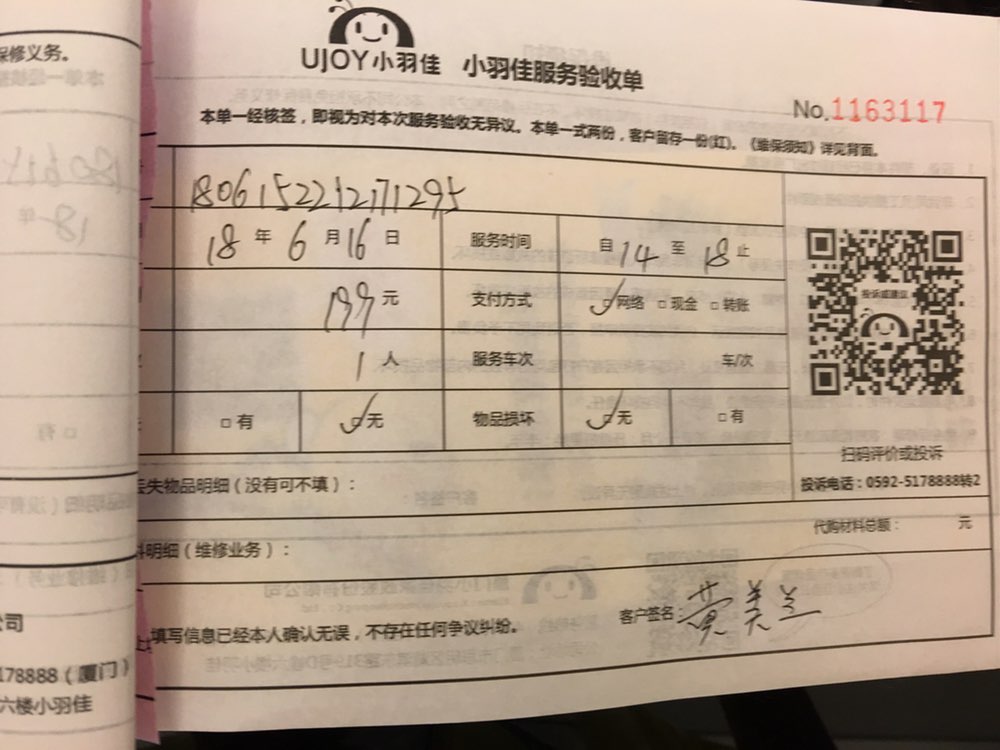 UJOY小羽佳 小羽佳服务验收单
No.1163117
本单一经核签，即视为对本次服务验收无异议。本单一式两份，客户留存一份(红)。《维保须知》详见背面。
1806152212171295
18 年 6 月 16 日 服务时间 自 14 至 18 止
199 元 支付方式 ☑网络 □现金 □转账
1 人 服务车次 车/次
□有 ☑无 物品损坏 ☑无 □有
投诉或建议
扫码评价或投诉
投诉电话：0592-5178888转2
失物品明细（没有可不填）：
代购材料总额： 元
明细（维修业务）：
填写信息已经本人确认无误，不存在任何争议纠纷。
客户签名：黄美兰
保修义务。
公司
178888（厦门）
六楼小羽佳